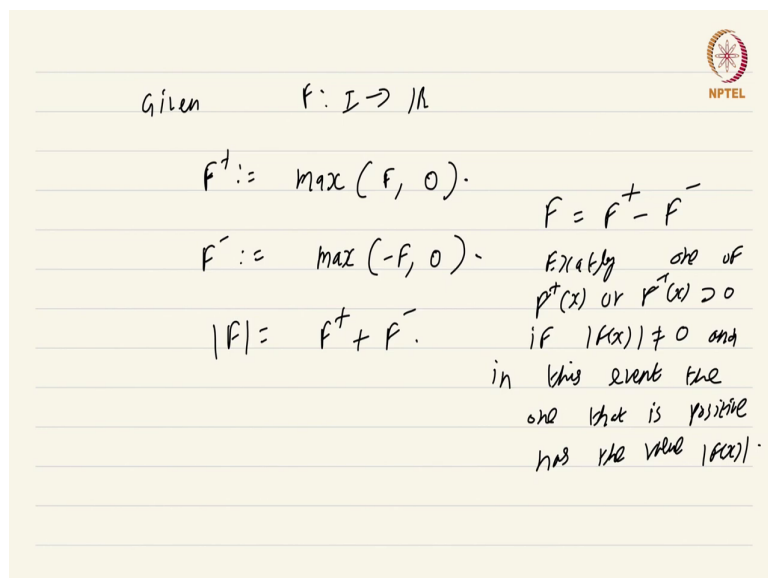 NPTEL
Given F: I → ℝ
F⁺ := max (F, 0).
F⁻ := max (-F, 0).
|F| = F⁺ + F⁻.
F = F⁺ - F⁻
Exactly one of
F⁺(x) or F⁻(x) > 0
if |F(x)| ≠ 0 and
in this event the
one that is positive
has the value |F(x)|.